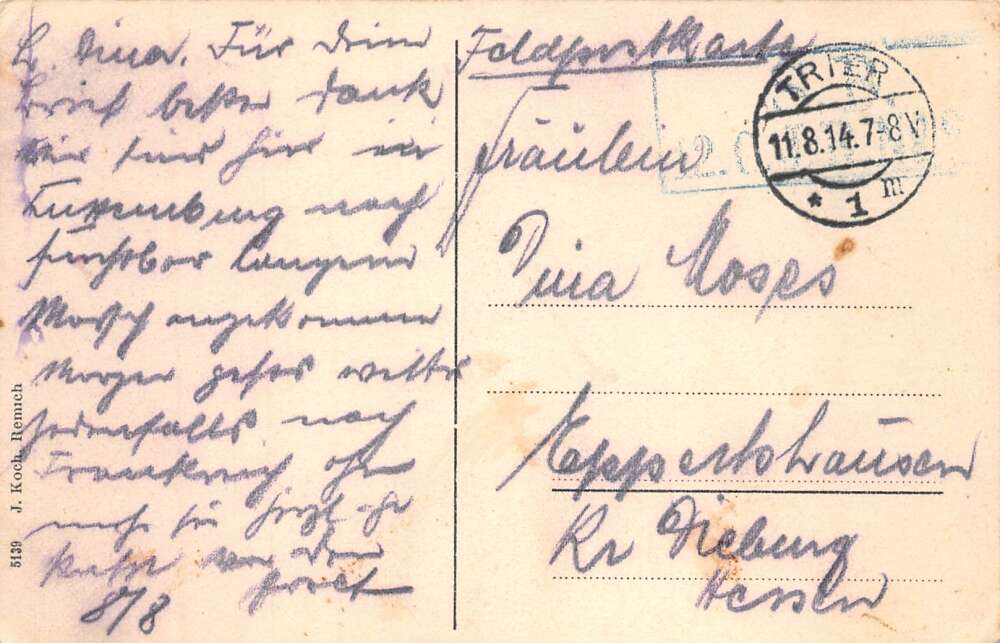 L. Dina. Für Dein
Brief besten Dank
Wir sind hier in
Luxemburg nach
furchtbar langem
Marsch angekommen
Morgen gehts weiter
jedenfalls nach
Frankreich
8/8
Feldpostkarte
TRIER
11.8.14.7-8V
* 1 m
Fräulein
Dina Moses
Eppertshausen
Kr Dieburg
Hessen
5139 J. Koch, Remich